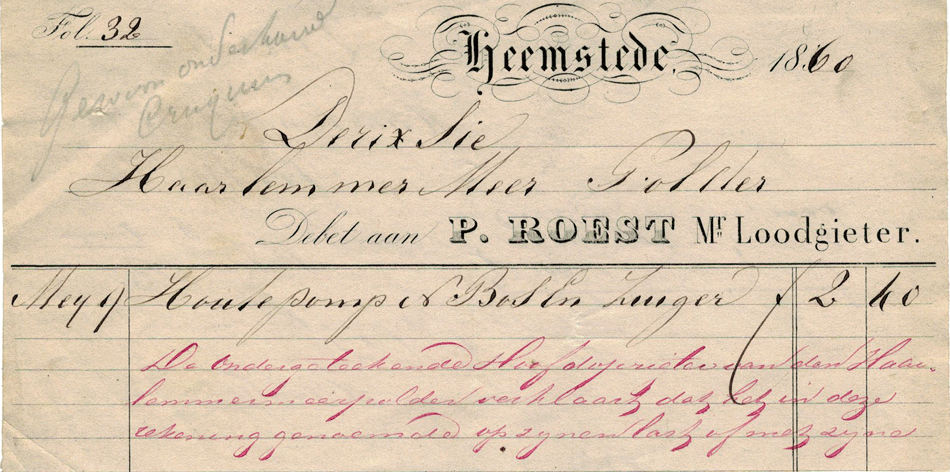 Fol. 32
Heemstede, 1860
Cruquius
Haarlemmer Meer Polder
Debet aan P. ROEST Mr Loodgieter.
Mey 9 Houte pomp N Bos En Zuiger f 2 40
De ondergeteekende Hoofdopziener van den Haar-
lemmermeerpolder verklaart dat het in deze
rekening genoemde op zynen last of met zyne